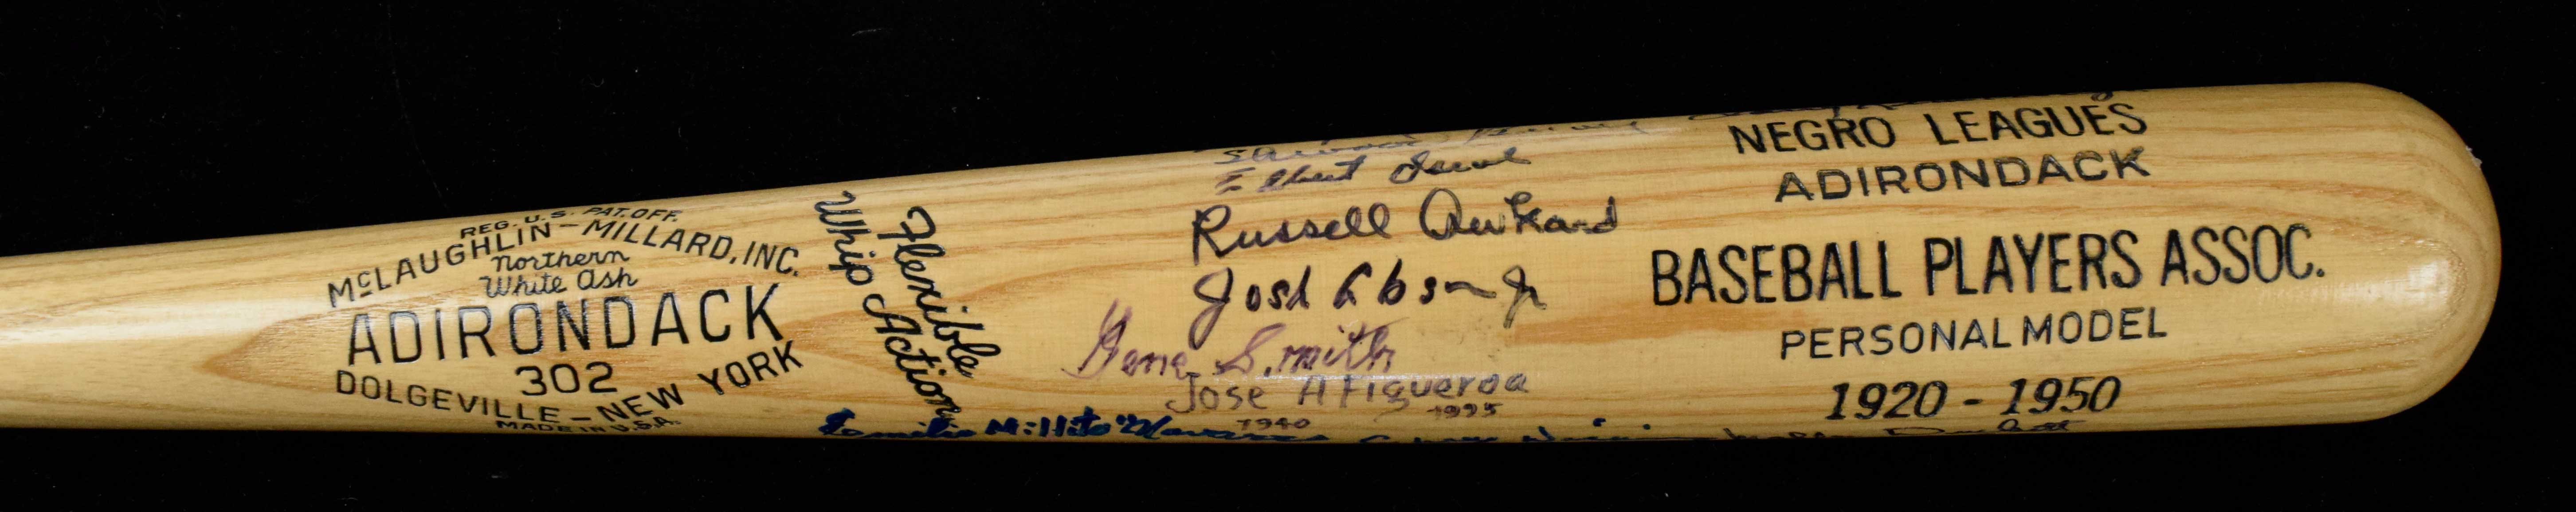 REG. U.S. PAT. OFF.
McLAUGHLIN-MILLARD, INC.
Northern
White Ash
ADIRONDACK
302
DOLGEVILLE-NEW YORK
MADE IN U.S.A.
Flexible
Whip Action
Russell Awkard
Josh Gibson Jr
Gene Smith
Jose A Figueroa
1940 1995
Emilio "Millito" Navarro
NEGRO LEAGUES
ADIRONDACK
BASEBALL PLAYERS ASSOC.
PERSONAL MODEL
1920 - 1950